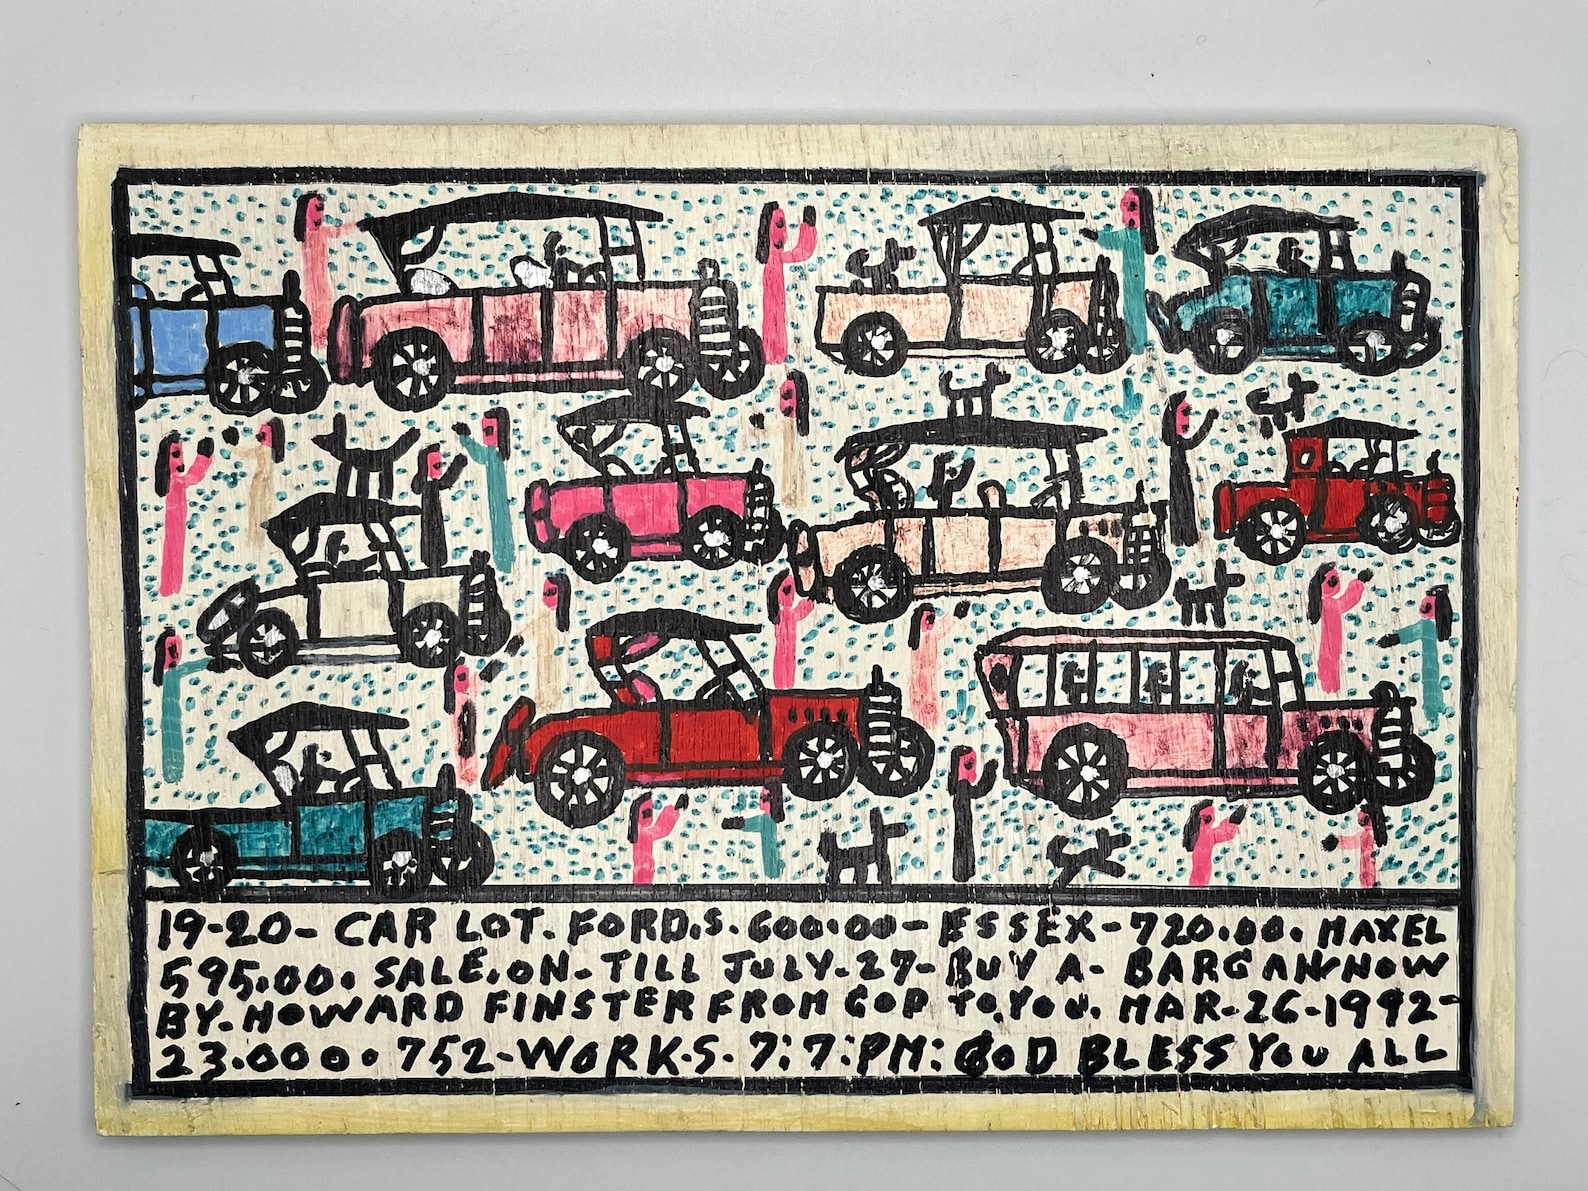 19-20- CAR LOT. FORD.S. 600.00- ESSEX- 720.00. MAXEL
595.00. SALE. ON- TILL JULY-27- BUY A- BARGAN NOW
BY. HOWARD FINSTER FROM GOD TO YOU. MAR-26-1992-
23.000. 752-WORK.S- 7:7:PM: GOD BLESS YOU ALL